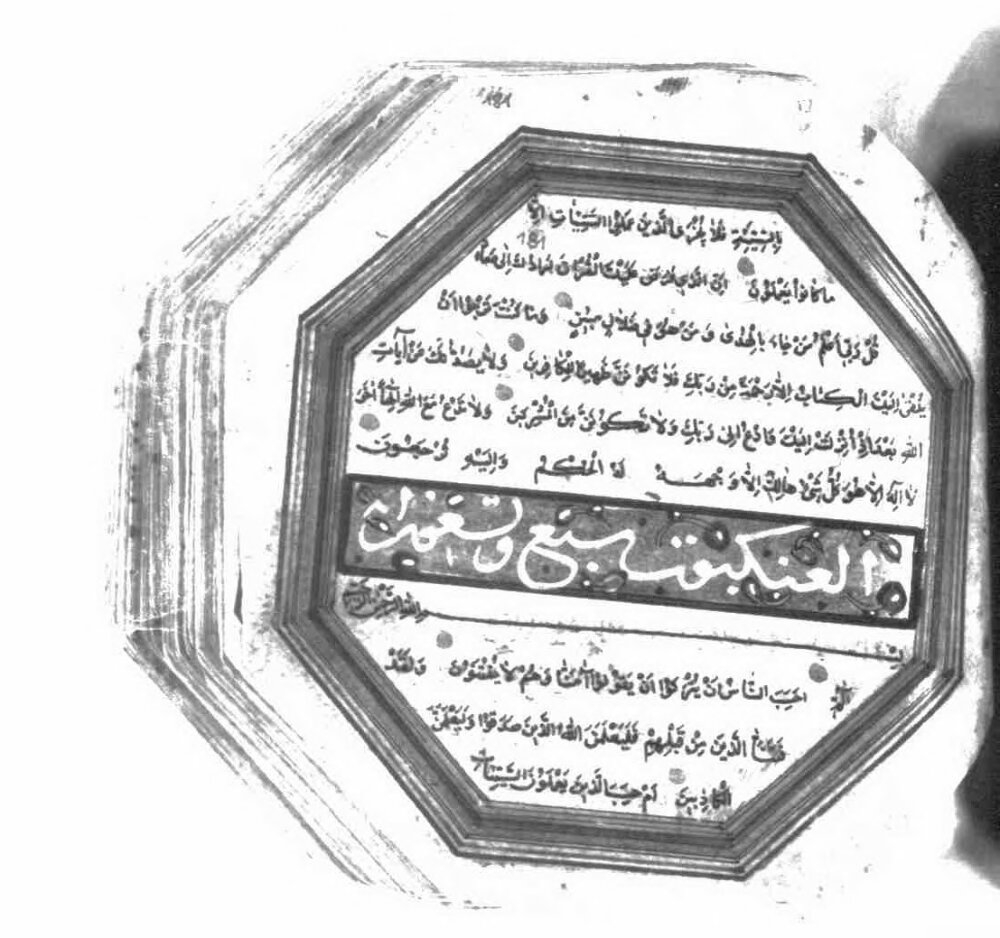 ١٨١
بِالسَّيِّئَةِ فَلاَ يُجْزَى الَّذِينَ عَمِلُوا السَّيِّئَاتِ اِلاَّ
181
مَا كَانُوا يَعْمَلُونَ اِنَّ الَّذِي فَرَضَ عَلَيْكَ الْقُرْآنَ لَرَادُّكَ اِلَى مَعَادٍ
قُلْ رَبِّي اَعْلَمُ مَنْ جَاءَ بِالْهُدَى وَمَنْ هُوَ فِي ضَلاَلٍ مُبِينٍ وَمَا كُنْتَ تَرْجُوا اَنْ
يُلْقَى اِلَيْكَ الْكِتَابُ اِلاَّ رَحْمَةً مِنْ رَبِّكَ فَلاَ تَكُونَنَّ ظَهِيرًا لِلْكَافِرِينَ وَلاَ يَصُدُّنَّكَ عَنْ آيَاتِ
اللهِ بَعْدَ اِذْ اُنْزِلَتْ اِلَيْكَ وَادْعُ اِلَى رَبِّكَ وَلاَ تَكُونَنَّ مِنَ الْمُشْرِكِينَ وَلاَ تَدْعُ مَعَ اللهِ اِلٰهًا آخَرَ
لاَ اِلٰهَ اِلاَّ هُوَ كُلُّ شَيْءٍ هَالِكٌ اِلاَّ وَجْهَهُ لَهُ الْحُكْمُ وَاِلَيْهِ تُرْجَعُونَ
العنكبوت سبع وتسعون اية
بسم الله الرحمن الرحيم
الم اَحَسِبَ النَّاسُ اَنْ يُتْرَكُوا اَنْ يَقُولُوا آمَنَّا وَهُمْ لاَ يُفْتَنُونَ وَلَقَدْ
فَتَنَّا الَّذِينَ مِنْ قَبْلِهِمْ فَلَيَعْلَمَنَّ اللهُ الَّذِينَ صَدَقُوا وَلَيَعْلَمَنَّ
الْكَاذِبِينَ اَمْ حَسِبَ الَّذِينَ يَعْمَلُونَ السَّيِّئَاتِ